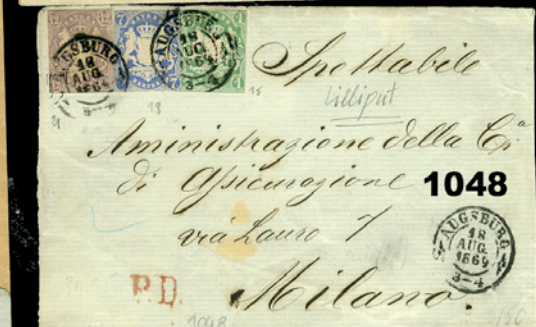 12 12 7 1
AUGSBURG
18
AUG.
1869
3-4
AUGSBURG
18
AUG.
1869
3-4
7 7 1 1
21 19 15
Spettabile
Lilliput
Aministrazione della Cia
di Assicurazione
1048
via Lauro 7
AUGSBURG
18
AUG.
1869
3-4
P.D.
Milano.
1048